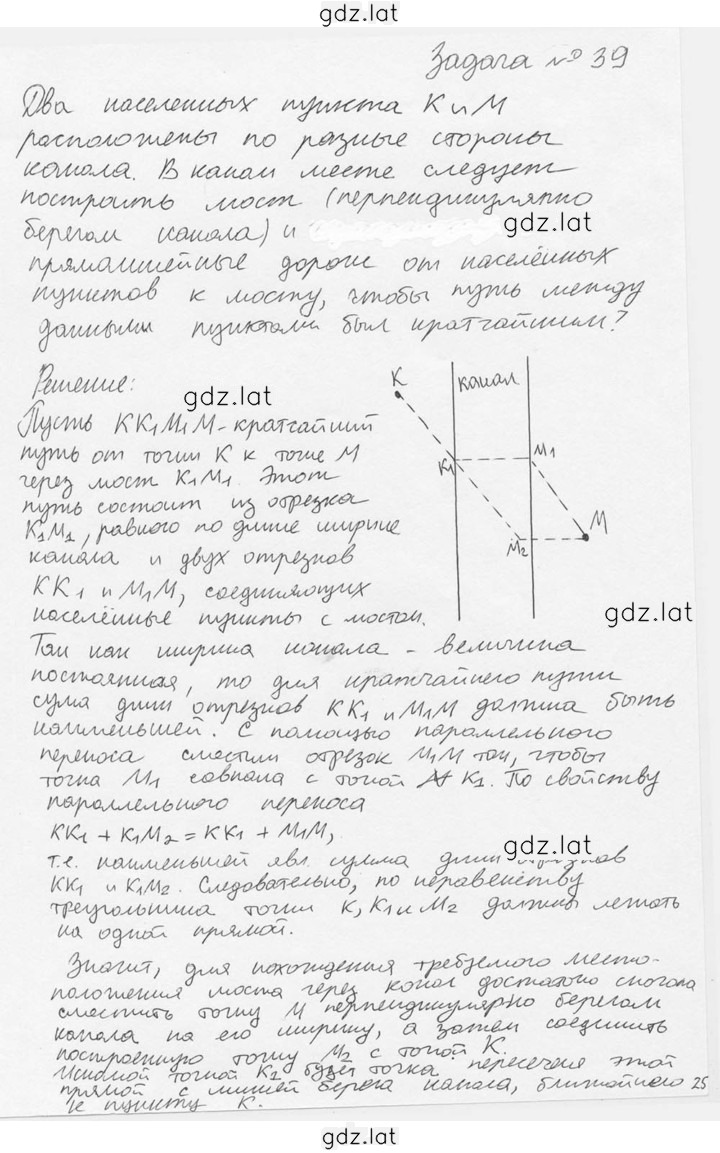 gdz.lat
Задача № 39
Два населенных пункта К и М
расположены по разные стороны
канала. В каком месте следует
построить мост (перпендикулярно
берегам канала) и
gdz.lat
прямолинейные дороги от населённых
пунктов к мосту, чтобы путь между
данными пунктами был кратчайшим?
Решение:
gdz.lat
Пусть КК₁М₁М - кратчайший
путь от точки К к точке М
через мост К₁М₁. Этот
путь состоит из отрезка
К₁М₁, равного по длине ширине
канала и двух отрезков
КК₁ и М₁М, соединяющих
населённые пункты с мостом.
К
канал
К₁
М₁
М
М₂
gdz.lat
Так как ширина канала - величина
постоянная, то для кратчайшего пути
сума длин отрезков КК₁ и М₁М должна быть
наименьшей. С помощью параллельного
переноса сместим отрезок М₁М так, чтобы
точка М₁ совпала с точкой К₁. По свойству
параллельного переноса
КК₁ + К₁М₂ = КК₁ + М₁М,
т.е. наименьшей явл. сумма длин
gdz.lat
КК₁ и К₁М₂. Следовательно, по неравенству
треугольника точки К, К₁ и М₂ должны лежать
на одной прямой.
Значит, для нахождения требуемого место-
положения моста через канал достаточно сначала
сместить точку М перпендикулярно берегам
канала на его ширину, а затем соединить
построенную точку М₂ с точкой К.
Искомой точкой К₁ будет точка пересечения этой
прямой с линией берега канала, ближайшего
к пункту К.
25
gdz.lat